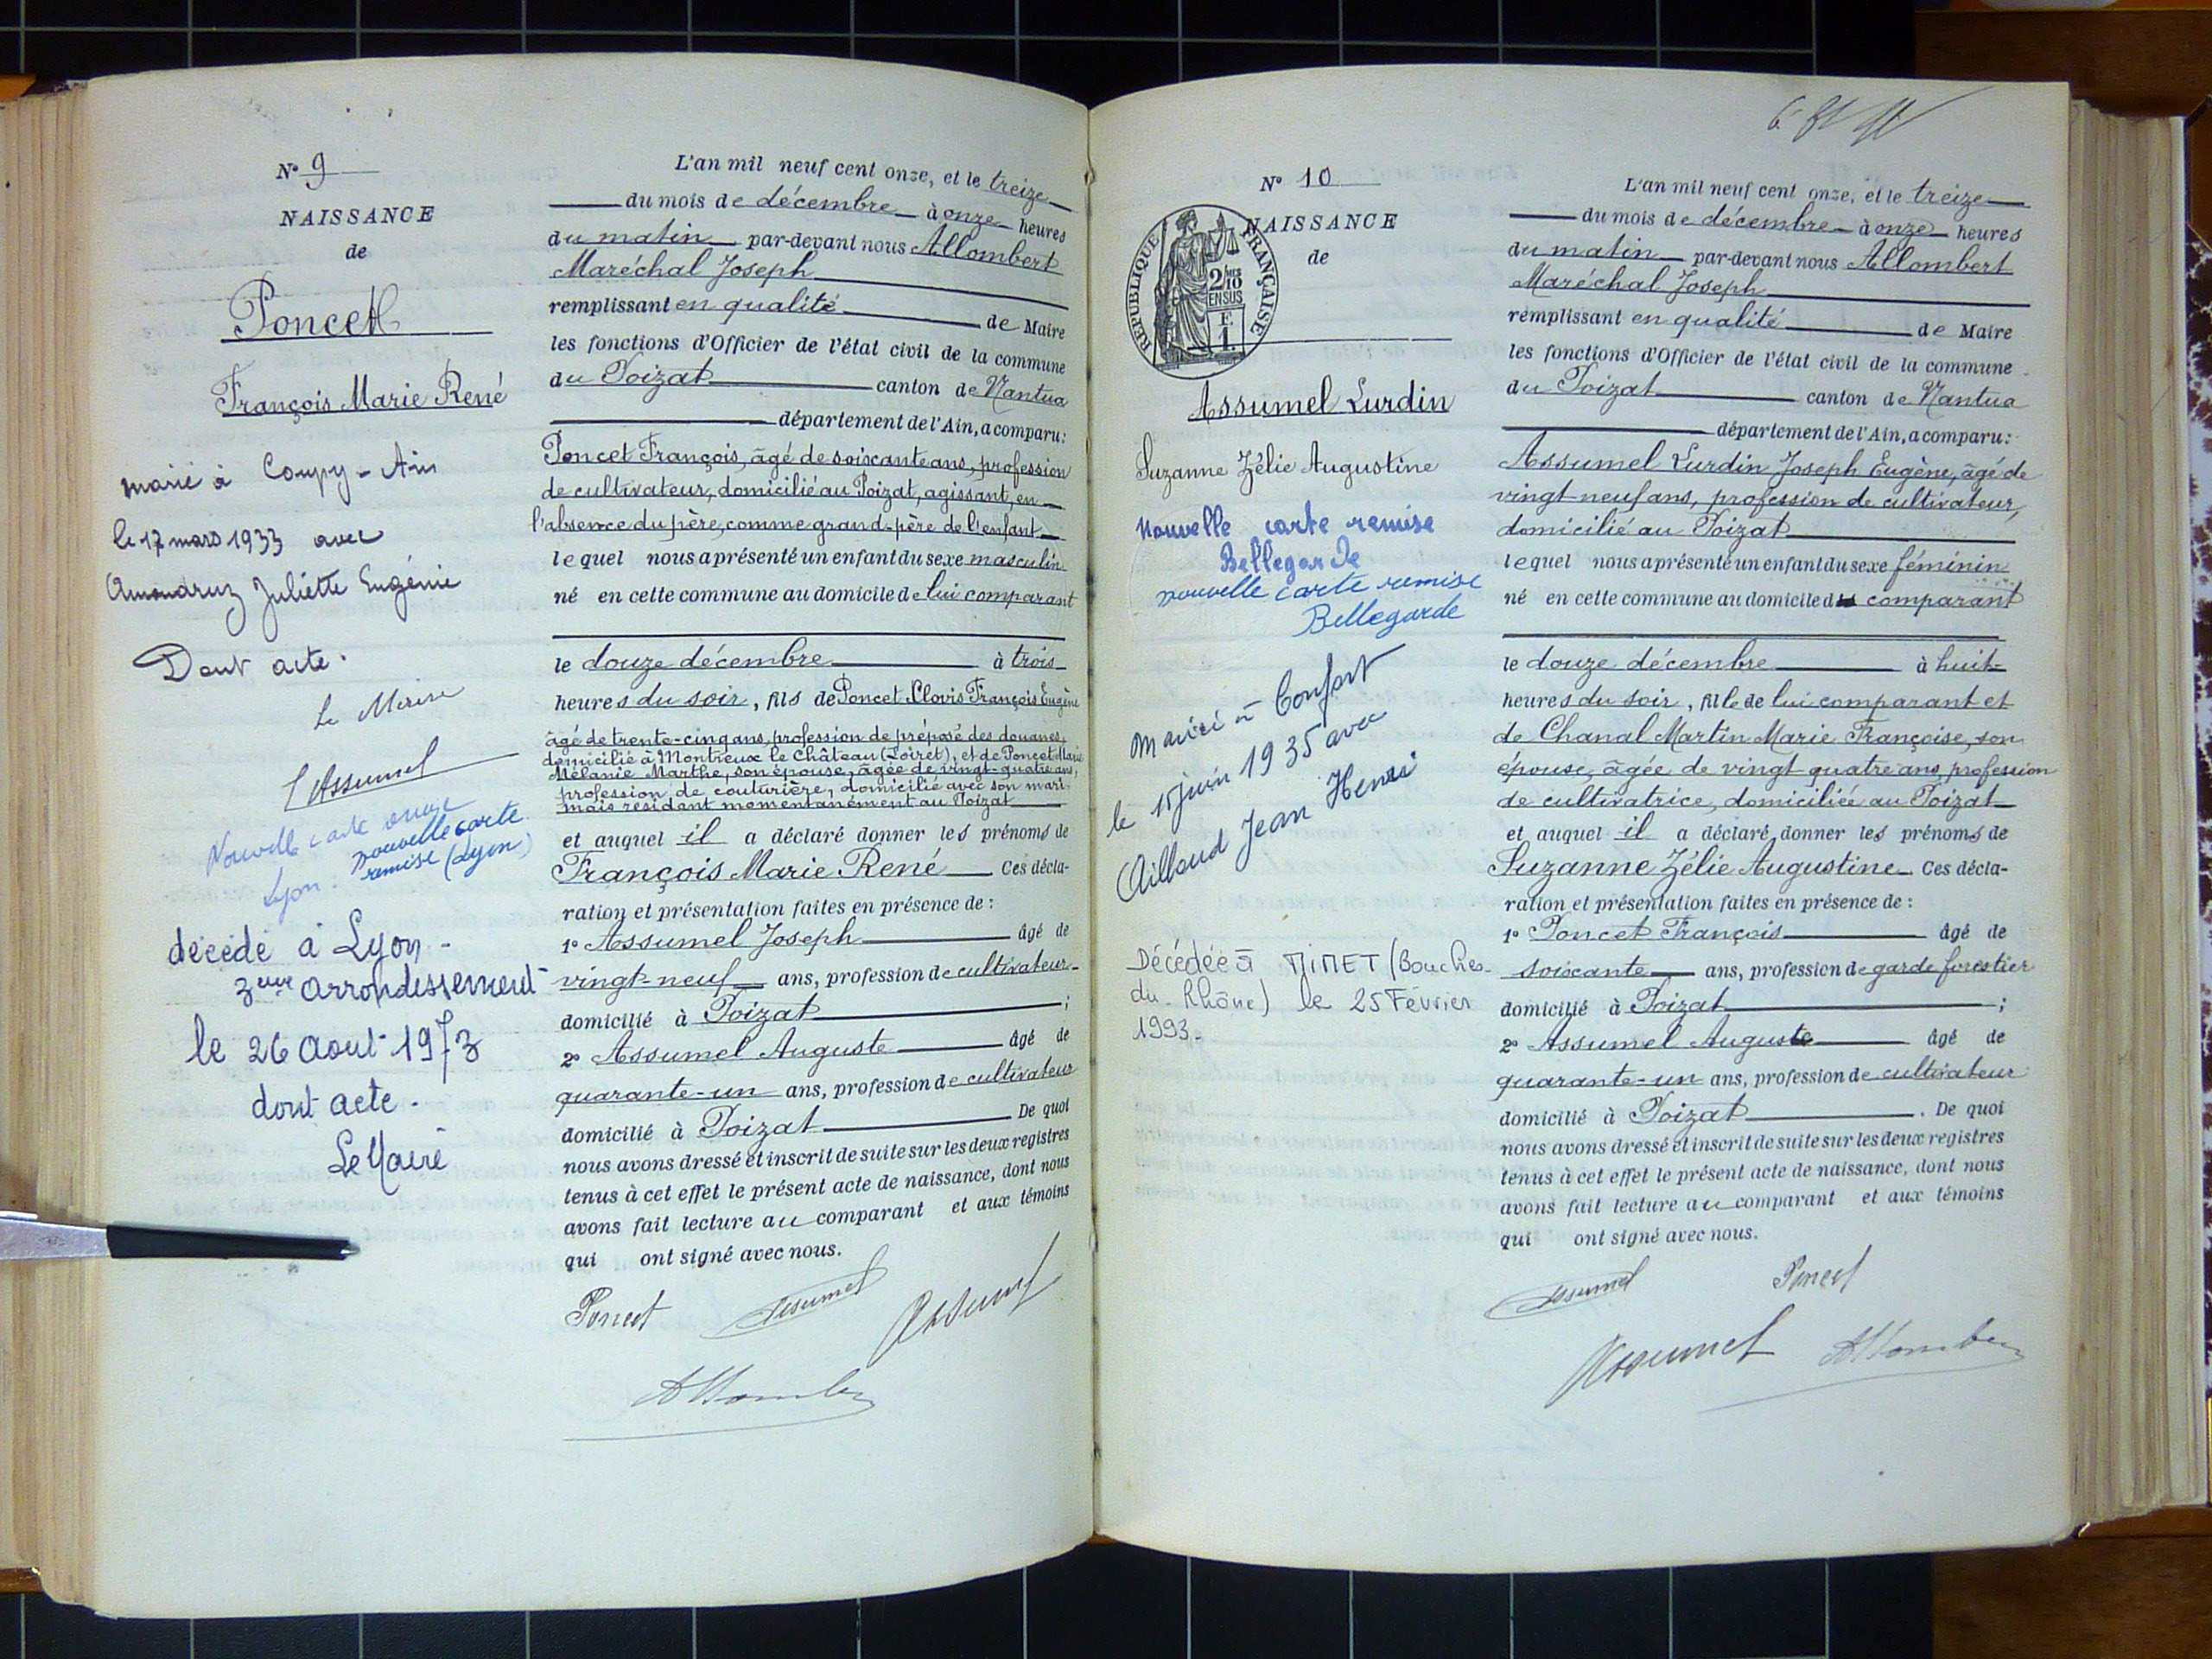 N° 9
NAISSANCE
de
Poncet
François Marie René
marié à Coupy - Ain
le 17 mars 1933 avec
Juliette Eugénie
Dont acte.
Le Maire
Assumel
Nouvelle carte
Lyon.
nouvelle carte
remise (Lyon)
décédé à Lyon -
3eme arrondissement
le 26 Aout 1973
dont acte.
Le Maire
L'an mil neuf cent onze, et le treize
du mois de décembre à onze heures
du matin par-devant nous Allombert
Maréchal Joseph
remplissant en qualité de Maire
les fonctions d'Officier de l'état civil de la commune
du Poizat canton de Nantua
département de l'Ain, a comparu:
Poncet François, âgé de soixante ans, profession
de cultivateur, domicilié au Poizat, agissant, en
l'absence du père, comme grand-père de l'enfant
lequel nous a présenté un enfant du sexe masculin
né en cette commune au domicile de lui comparant
le douze décembre à trois
heures du soir, fils de Poncet Clovis François Eugène
âgé de trente-cinq ans, profession de préposé des douanes,
domicilié à Montreux le Château (Loiret), et de Poncet Marie
Mélanie Marthe, son épouse, âgée de vingt-quatre ans,
profession de couturière, domicilié avec son mari
mais résidant momentanément au Poizat
et auquel il a déclaré donner les prénoms de
François Marie René Ces décla-
ration et présentation faites en présence de :
1° Assumel Joseph âgé de
vingt-neuf ans, profession de cultivateur
domicilié à Poizat ;
2° Assumel Auguste âgé de
quarante-un ans, profession de cultivateur
domicilié à Poizat De quoi
nous avons dressé et inscrit de suite sur les deux registres
tenus à cet effet le présent acte de naissance, dont nous
avons fait lecture au comparant et aux témoins
qui ont signé avec nous.
Poncet Assumel Assumel
Allomber
N° 10
NAISSANCE
de
RÉPUBLIQUE FRANÇAISE
2/10
EN SUS
F.
1.
Assumel Lurdin
Suzanne Zélie Augustine
Nouvelle carte remise
Bellegarde
nouvelle carte remise
Bellegarde
Mariée à Confort
le 15 juin 1935 avec
Aillaud Jean Henri
Décédée à MIMET (Bouches-
du-Rhône) le 25 Février
1993.
L'an mil neuf cent onze, et le treize
du mois de décembre à onze heures
du matin par-devant nous Allombert
Maréchal Joseph
remplissant en qualité de Maire
les fonctions d'Officier de l'état civil de la commune
du Poizat canton de Nantua
département de l'Ain, a comparu:
Assumel Lurdin Joseph Eugène, âgé de
vingt-neuf ans, profession de cultivateur,
domicilié au Poizat
lequel nous a présenté un enfant du sexe féminin
né en cette commune au domicile d comparant
le douze décembre à huit
heures du soir, fille de lui comparant et
de Chanal Martin Marie Françoise, son
épouse, âgée de vingt quatre ans, profession
de cultivatrice, domiciliée au Poizat
et auquel il a déclaré donner les prénoms de
Suzanne Zélie Augustine. Ces décla-
ration et présentation faites en présence de :
1° Poncet François âgé de
soixante ans, profession de garde forestier
domicilié à Poizat ;
2° Assumel Auguste âgé de
quarante-un ans, profession de cultivateur
domicilié à Poizat . De quoi
nous avons dressé et inscrit de suite sur les deux registres
tenus à cet effet le présent acte de naissance, dont nous
avons fait lecture au comparant et aux témoins
qui ont signé avec nous.
Assumel Poncet
Assumel Allomber